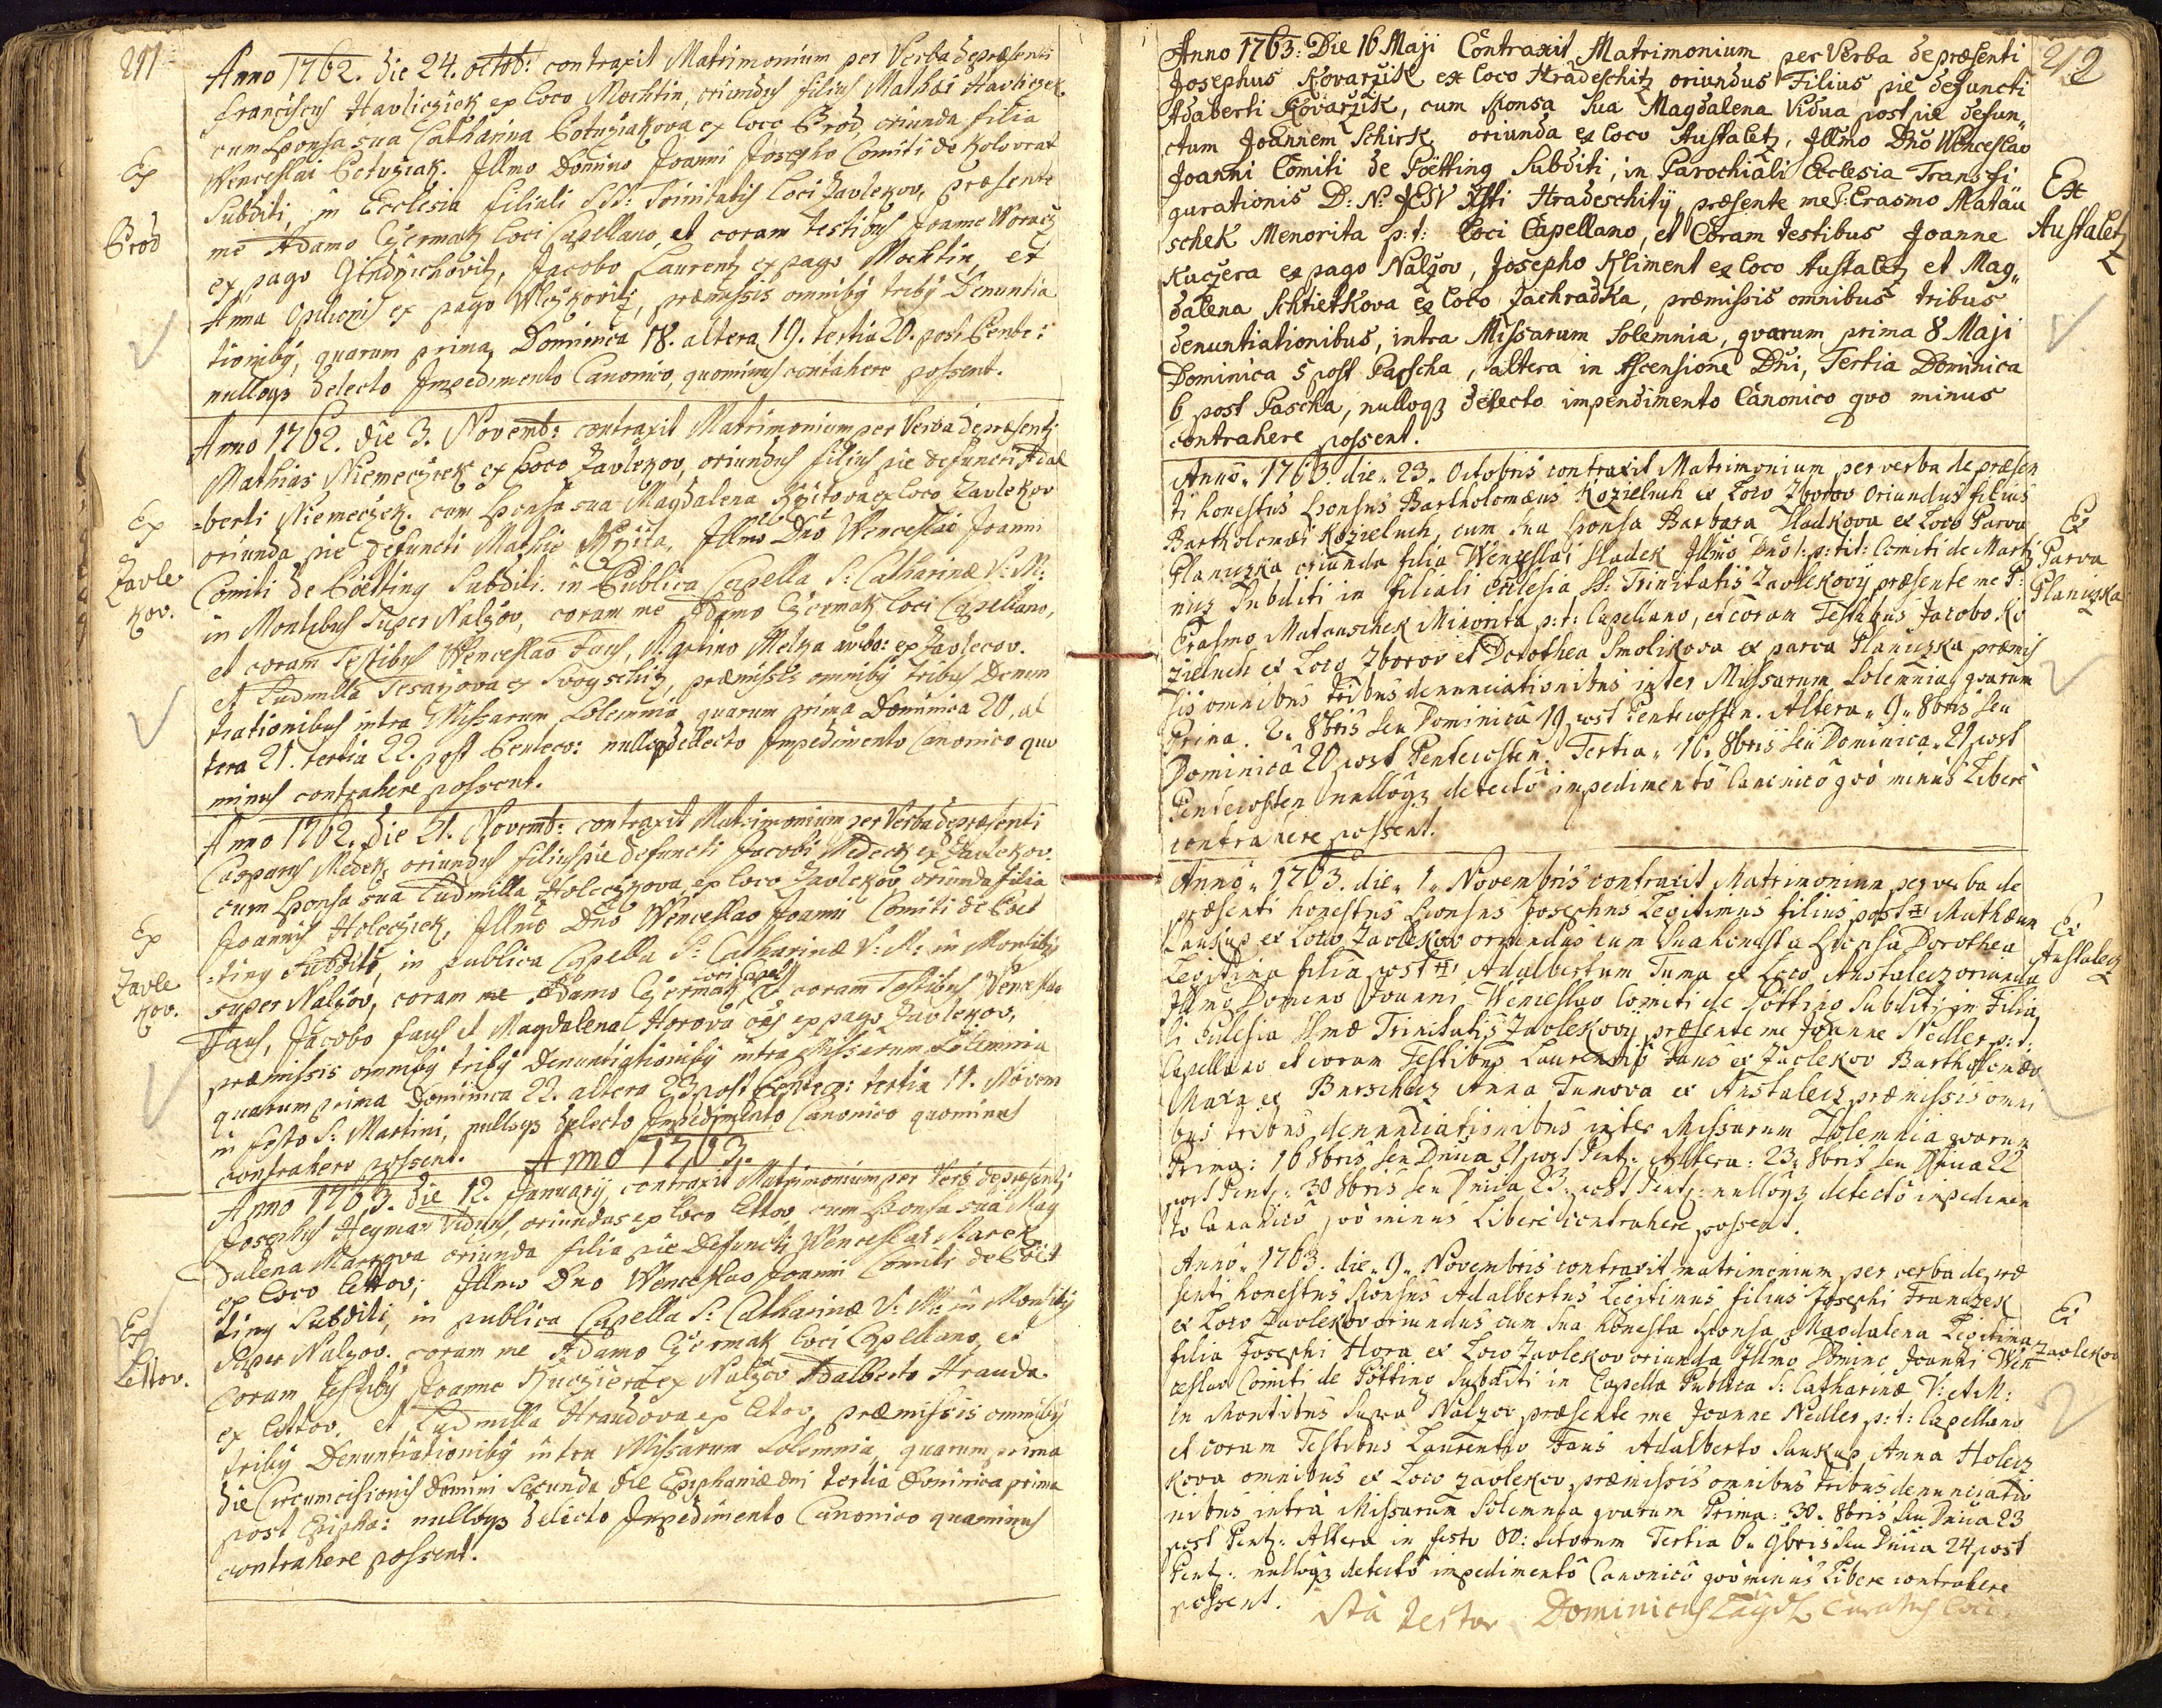 211
Anno 1762. die 24. octob: contraxit Matrimonium per Verba de præsenti
Franciscus Havliczek ex loco Mochtin, oriundus filius Mathæi Havliczek
cum Sponsa sua Catharina Petužiakova ex loco Brod, oriunda filia
Wenceslai Petužiak. Jllmo Domino Joanni Josepho Comiti de Kolovrat
Subditi, in Ecclesia filiali SS: Trinitatis loci Zavlekov, præsente
me Adamo Czermak loci Capellano, et coram testibus Joanne Woracz
ex pago Gindrichovitz, Jacobo Laurentz ex pago Mochtin, et
Anna Opilionis ex pago Wlczkovitz, præmissis omnibq tribq Denuntia
tionibq, quarum prima Dominica 18. altera 19. tertia 20. post Pente:
nulloqz detecto Jmpedimento Canonico, quominus contahere possent.
Ex
Brod
Anno 1762. die 3. Novemb: contraxit Matrimonium per Verba de præsenti
Mathias Niemeczek ex Loco Zavlekov, oriundus filius pie defuncti Adal
=berti Niemeczek. cum Sponsa sua Magdalena Krzitova ex loco Zavlekov
oriunda pie defuncti Mathiæ Krzita, Jllmo Dno Wenceslao Joanni
Comiti de Pötting Subditi. in Publica Capella S: Catharinæ V: M:
in Montibus super Nalzov, coram me Adamo Czermak loci Capellano,
et coram Testibus Wenceslao Faus, Martino Melka ambo: ex Zavlecov.
et Ludmilla Tesarzova ex Svogschitz, præmissis omnibq tribus Denun
tiationibus intra Missarum Solemnia quarum prima Dominica 20. al
tera 21. tertia 22. post Penteco: nulloqz detecto Jmpedimento Canonico quo
minus contrahere possent.
Ex
Zavle
kov.
Anno 1762. die 21. Novemb: contraxit Matrimonium per Verba de præsenti
Casparus Medek, oriundus filius pie defuncti Jacobi Medeck ex Zavlekov.
cum Sponsa sua Ludmilla Holeczkova, ex loco Zavlekov oriunda filia
Joannis Holeczek, Jllmo Dno Wenceslao Joanni Comiti de Pöt
=ting Subditi, in publica Capella S: Catharinæ V: M: in Montibq
super Nalzov, coram me Adamo Czermak loci Capell: et coram Testibus Wenceslao
Faus, Jacobo Faus et Magdalena Horova oes ex pago Zavlekov,
præmissis omnibq tribq Denuntiationibq intra Missarum Solemnia
quarum prima Dominica 22. altera 23 post Penteco: tertia 11. Novem
in festo S: Martini, nulloqz detecto Jmpedimento Canonico quominus
contrahere possent.
Ex
Zavle
kov.
Anno 1763.
Anno 1763. die 12. January, contraxit Matrimonium per Verb: de præsenti
Josephus Hegman Viduus, oriundus ex loco Lettov cum Sponsa sua Mag
dalena Markova oriunda filia pie Defuncti Wenceslai Marek
ex loco Lettov; Jllmo Dno Wenceslao Joanni Comiti de Pöt
ting Subditi, in publica Capella S: Catharinæ V: M: in Montibq
super Nalzov. coram me Adamo Czermak loci Capellano, et
coram testibq Joanne Kuczera ex Nalzov Adalberto Hrauda
ex Lettov. et Ludmilla Hraudova ex Letov, præmissis omnibq
tribq Denuntiationibq intra Missarum Solemnia, quarum prima
die Circumcisionis Domini Secunda die Epiphaniæ Dni tertia Dominica prima
post Epipha: nulloqz detecto Jmpedimento Canonico quominus
contrahere possent.
Ex
Lettov.
212
Anno 1763: Die 16 Maji Contraxit Matrimonium per Verba de præsenti
Josephus Kovarzik ex loco Hradeschitz oriundus Filius pie defuncti
Adaberti Kovarzik, cum Sponsa sua Magdalena Vidua post pie defun„
ctum Joannem Schirk oriunda ex loco Austaletz, Jllmo Dno Wenceslao
Joanni Comiti de Poëtting Subditi, in Parochiali Ecclesia Transfi
gurationis D: N: JESU Xsti Hradeschity, præsente me F: Erasmo Matau
schek Menorita p: t: Loci Capellano, et Coram testibus Joanne
Kuczera ex pago Nalzov, Josepho Kliment ex loco Austaletz et Mag„
dalena Schtietkova ex loco Zachradka, præmissis omnibus tribus
denuntiationibus, intra Missarum Solemnia, qvarum prima 8 Maji
Dominica 5 post Pascha, altera in Ascensione Dni, Tertia Dominica
6 post Pascha, nulloqz detecto impendimento Canonico qvo minus
contrahere possent.
Ex
Austaletz
Anno„ 1763. die„ 23„ Octobris contraxit Matrimonium per verba de præsen
ti honestus Sponsus Bartholomæus Kozieluch ex Loco Zborov Oriundus filius
Bartholomæi Kozieluch, cum sua sponsa Barbara Sladkova ex Loco Parva
Planiczka oriunda filia Wenceslai Sladek Jllmo Dno /: p: tit: Comiti de Marti
nicz Subditi in filiali Ecclesia SS: Trinitatis Zavlekovy præsente me P:
Erasmo Matauschek Minorita p: t: Capellano, et coram Testibus Jacobo Ko
zieluch ex Loco Zborov et Dorothea Smolikova ex parva Planiczka præmis
sis omnibus tribus denunciationibus inter Missarum Solemnia, qvarum
Prima. 2„ 8bris seu Dominica 19 post Pentecosten. Altera„ 9„ 8bris seu
Dominica 20 post Pentecosten. Tertia„ 16„ 8bris seu Dominica„ 21 post
Pentecosten nulloqz detecto impedimento Canonico qvo minus Libere
contrahere possent.
Ex
Parva
Planiczka
Anno„ 1763. die„ 1„ Novembris contraxit Matrimonium per verba de
præsenti honestus Sponsus Josephus Legitimus filius post Mathæum
Saukup ex Loco Zavlekov oriundus cum sua honesta Sponsa Dorothea
Legitima filia post Adalbertum Tuma ex Loco Austalecz oriunda
Jllmo Domino Joanni Wenceslao Comiti de Pötting Subditi in Filia
li Eclesia SSmæ Trinitatis Zavlekovy præsente me Joanne Nedler p: t:
Capellano et coram Testibus Laurentio Faus ex Zavlekov Bartholomæo
Maxa ex Burschicz Anna Tumova ex Austalecz præmissis omni
bus tribus denunciationibus inter Missarum Solemnia qvarum
Prima: 16 8bris seu Dnica 21 post Pent: Altera: 23„ 8bris seu Dnica 22
post Pent: 30 8bris seu Dnica 23. post Pent: nulloqz detecto impedimen
to Canonico qvo minus Libere contrahere possent.
Ex
Austalecz
Anno„ 1763. die„ 9„ Novembris contraxit matrimonium per verba de præ
senti honestus Sponsus Adalbertus Legitimus filius Josephi Franczek
ex Loco Zavlekov oriundus cum sua honesta sponsa Magdalena Legitima
filia Josephi Hora ex Loco Zavlekov oriunda Jllmo Domino Joanni Wen
ceslao Comiti de Pötting Subditi in Capella Publica S: Catharinæ V: et M:
in Montibus supra Nalzov præsente me Joanne Nedler p: t: Capellano
et coram Testibus Laurentio Faus Adalberto Saukup Anna Holecz
kova omnibus ex Loco Zavlekov præmissis omnibus tribus denunciatio
nibus intra Missarum Solemnia qvarum Prima: 30. 8bris seu Dnica 23
post Pent: Altera in festo OO: Sctorum Tertia 6„ 9bris seu Dnica 24 post
Pent: nulloqz detecto impedimento Canonico qvo minus Libere contrahere
possent.
Ex
Zavlekov
Ita testor Dominicus Curatus Loci